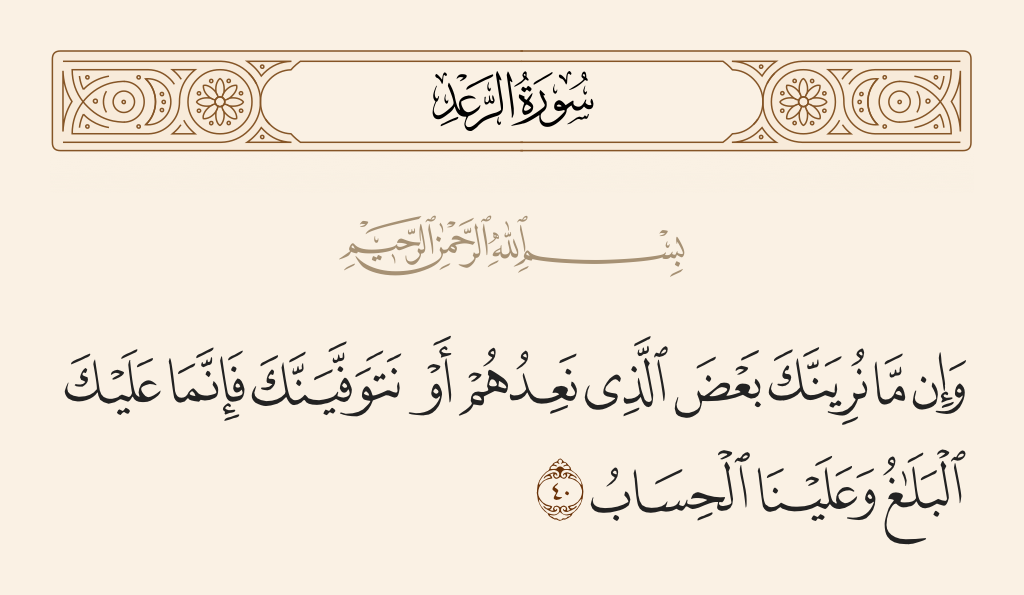 سُورَةُ الرَّعْدِ
بِسْمِ ٱللَّهِ ٱلرَّحْمَٰنِ ٱلرَّحِيمِ
وَإِن مَّا نُرِيَنَّكَ بَعْضَ ٱلَّذِى نَعِدُهُمْ أَوْ نَتَوَفَّيَنَّكَ فَإِنَّمَا عَلَيْكَ
ٱلْبَلَٰغُ وَعَلَيْنَا ٱلْحِسَابُ ٤٠